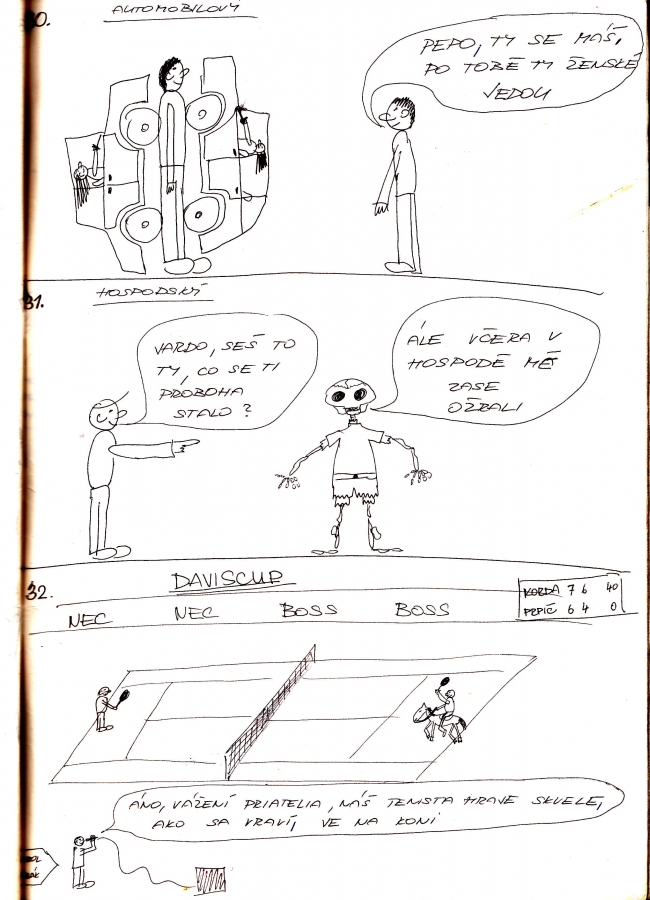 30.
AUTOMOBILOVÝ
PEPO, TY SE MÁŠ,
PO TOBĚ TY ŽENSKÉ
JEDOU
31.
HOSPODSKÝ
VARDO, SEŠ TO
TY, CO SE TI
PROBOHA
STALO?
ÁLE VČERA V
HOSPODĚ MĚ
ZASE
OŽRALI
32.
DAVISCUP
NEC NEC BOSS BOSS
KORDA 7 6 40
PRPIČ 6 4 0
ÁNO, VÁŽENÍ PRIATELIA, NÁŠ TENISTA HRAVE SKVELE,
AKO SA VRAVÍ, JE NA KONI